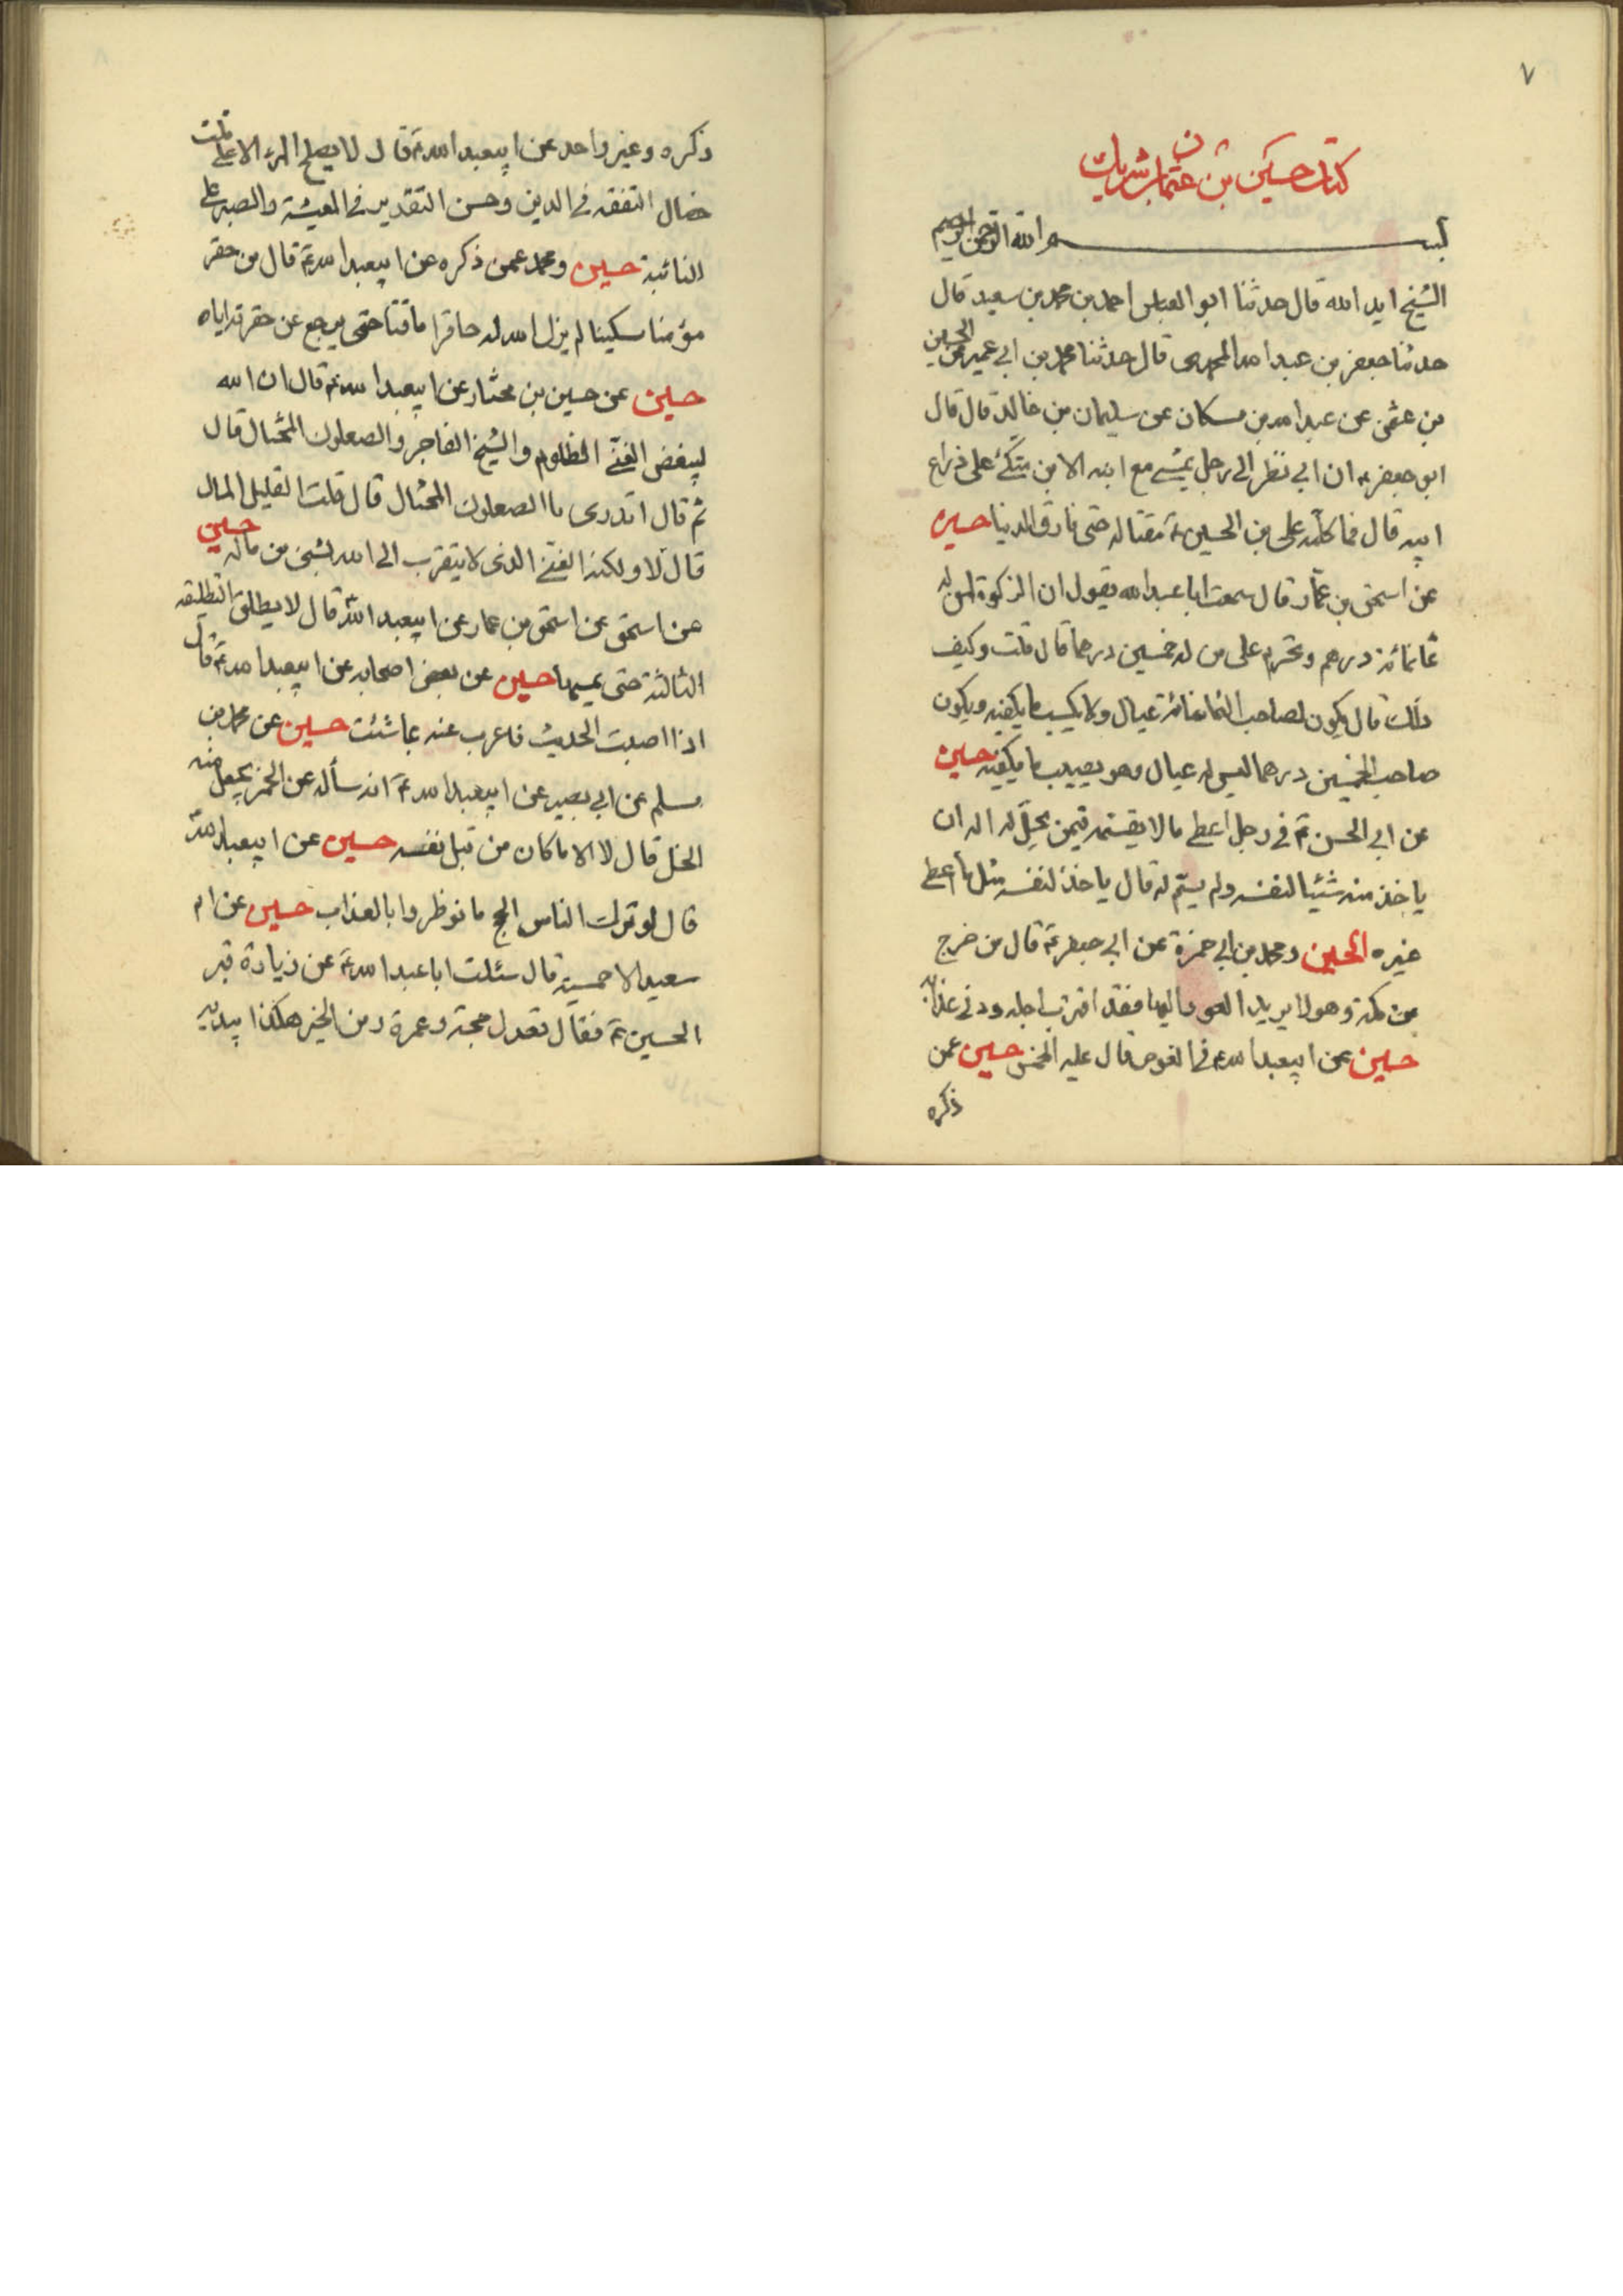 ٧
كتاب حسين بن عثمان بن شريك
بسم الله الرحمن الرحيم
الشيخ ايده الله قال حدثنا ابو العباس احمد بن محمد بن سعيد قال
حدثنا جعفر بن عبد الله المحمدى قال حدثنا محمد بن ابي عمير عن الحسين
بن عثمن عن عبد الله بن مسكان عن سليمان بن خالد قال قال
ابو جعفر ع ان ابي نظر الى رجل يمشي مع ابنه الابن متكئ على ذراع
ابيه قال فما كلمه على بن الحسين ع مقتا له حتى فارق الدنيا حسين
عن اسحق بن عمار قال سمعت ابا عبد الله يقول ان الزكوة لمن له
ثمانمائة درهم وتحرم على من له خمسين درهما قال قلت وكيف
ذلك قال يكون لصاحب الثمانمائة عيال ولا يكسب ما يكفيه ويكون
صاحب الخمسين درهما ليس له عيال وهو يصيب ما يكفيه حسين
عن ابي الحسن ع في رجل اعطى مالا يقسمه فيمن يحل له اله ان
ياخذ منه شيئا لنفسه ولم يسم له قال ياخذ لنفسه مثل ما اعطى
غيره الحسين ومحمد بن ابي حمزة عن ابي جعفر ع قال من خرج
من مكة وهو لا يريد العود اليها فقد اقترب اجله ودنى عذابه
حسين عن ابيعبد الله ع في الغوص قال عليه الخمس حسين عمن
ذكره
٨
ذكره وغير واحد عن ابيعبد الله ع قال لا يصلح المرء الا على ثلث
خصال التفقه في الدين وحسن التقدير في المعيشة والصبر على
النائبة حسين ومحمد عمن ذكره عن ابيعبد الله ع قال من حقر
مؤمنا مسكينا لم يزل الله له حاقرا ماقتا حتى يرجع عن حقرته اياه
حسين عن حسين بن مختار عن ابيعبد الله ع قال ان الله
ليبغض الغني الظلوم والشيخ الفاجر والصعلوك المختال قال
ثم قال اتدرى ما الصعلوك المختال قال قلت القليل المال
قال لا ولكنه الغني الذى لا يتقرب الى الله بشئ من ماله حسين
عن اسحق عن اسحق بن عمار عن ابيعبد الله قال لا يطلق التطليقة
الثالثة حتى يمسها حسين عن بعض اصحابه عن ابيعبد الله ع قال
اذا اصبت الحديث فاعرب عنه بما شئت حسين عن محمد بن
مسلم عن ابي بصير عن ابيعبد الله ع انه سأله عن الخمر يجعل منه
الخل قال لا الا ما كان من قبل نفسه حسين عن ابيعبد الله
قال لو ترك الناس الحج ما نوظروا بالعذاب حسين عن ام
سعيد الاحمسية قال سئلت ابا عبد الله ع عن زيارة قبر
الحسين ع فقال تعدل حجة وعمرة ومن الخير هكذا بيديه